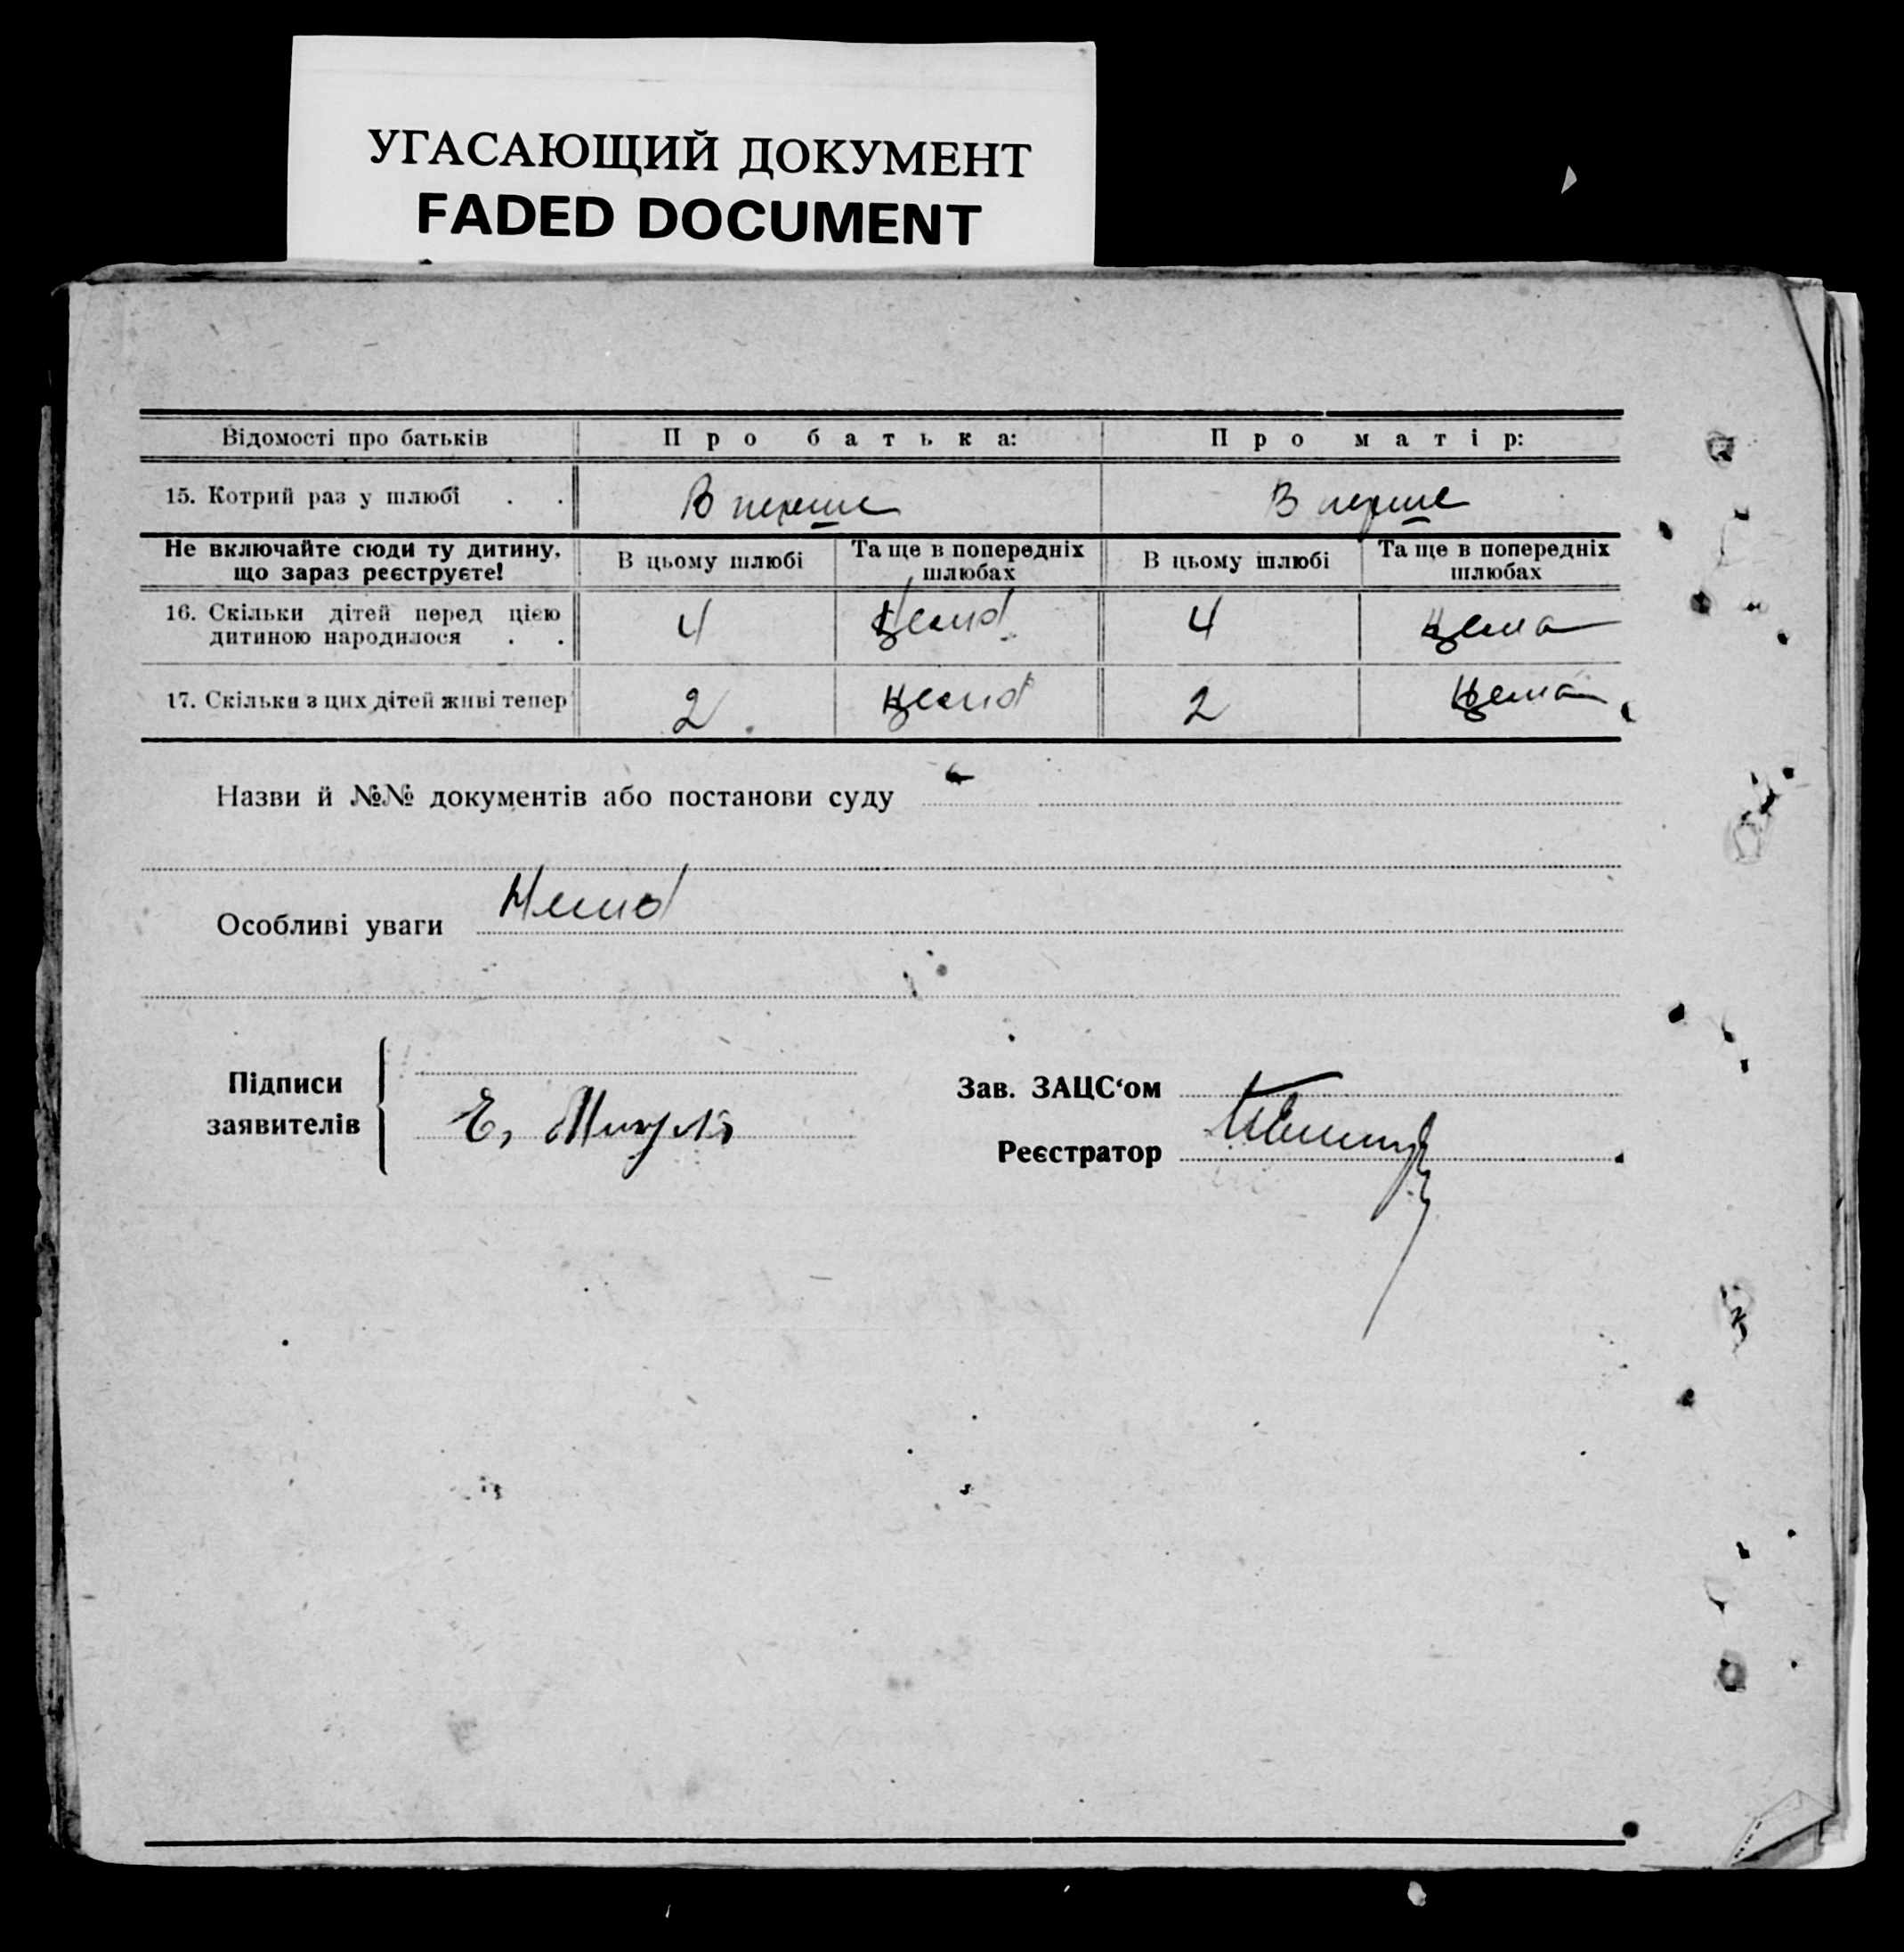 УГАСАЮЩИЙ ДОКУМЕНТ
FADED DOCUMENT
Відомості про батьків Про батька: Про матір:
15. Котрий раз у шлюбі . . В перше В перше
Не включайте сюди ту дитину, що зараз реєструєте! В цьому шлюбі Та ще в попередніх шлюбах В цьому шлюбі Та ще в попередніх шлюбах
16. Скільки дітей перед цією дитиною народилося . . 4 Нема 4 Нема
17. Скільки з цих дітей живі тепер 2 Нема 2 Нема
Назви й №№ документів або постанови суду
Особливі уваги Нема
Підписи заявителів
Е.
Зав. ЗАЦС‘ом
Реєстратор